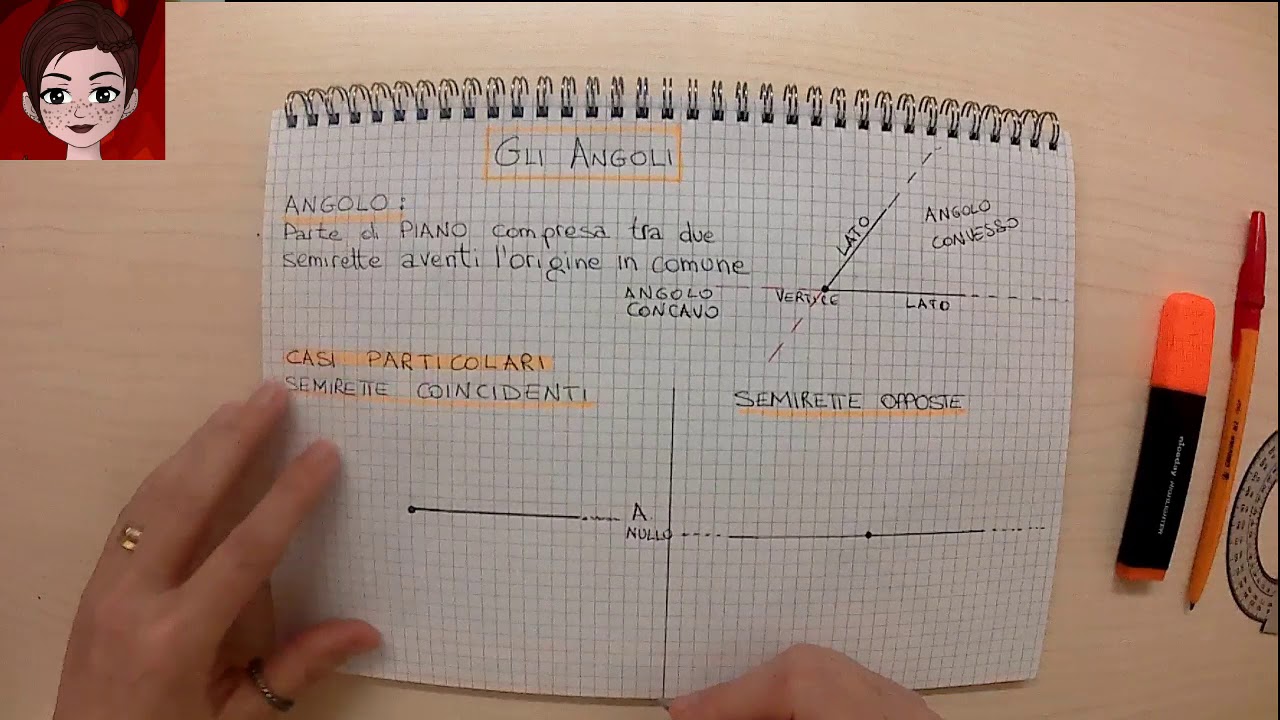 GLI ANGOLI
ANGOLO:
Parte di PIANO compresa tra due
semirette aventi l'origine in comune
LATO
ANGOLO
CONVESSO
ANGOLO
CONCAVO
VERTICE
LATO
CASI PARTICOLARI
SEMIRETTE COINCIDENTI
SEMIRETTE OPPOSTE
A.
NULLO